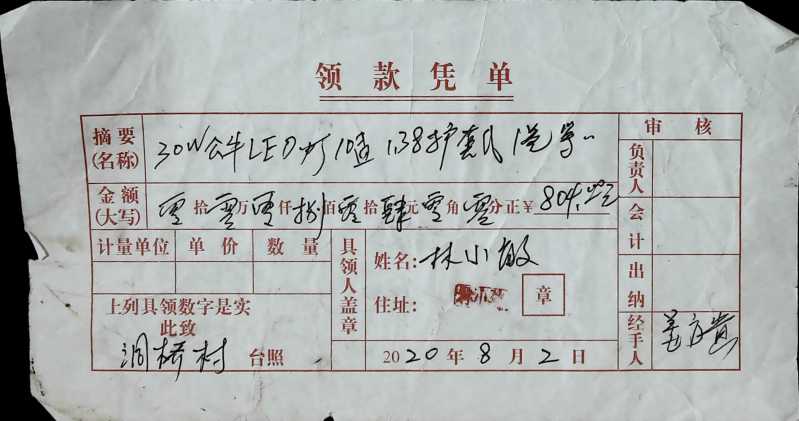 领款凭单
摘要
(名称)
30W公牛LED灯10盏
审核
负责人
金额
(大写)
零拾零万零仟捌佰零拾肆元零角零分正¥804.00元
会计
计量单位 单价 数量
具领人盖章
姓名:林小敏
出纳
住址:
章
上列具领数字是实
此致
经手人
洞桥村 台照
2020年8月2日